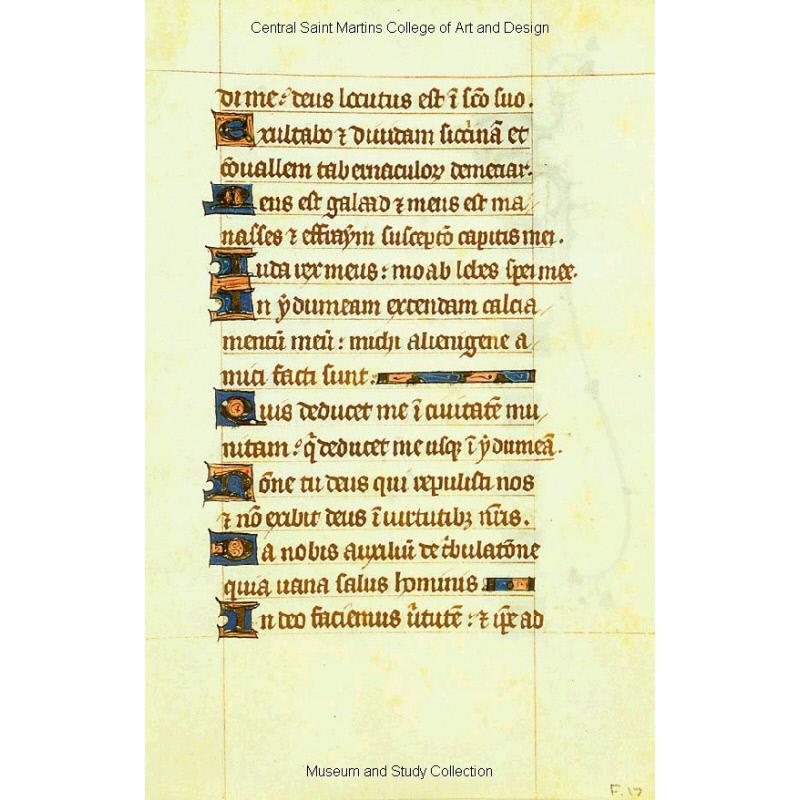 Central Saint Martins College of Art and Design
di me : deus locutus est ī sc̄o suo .
Exultabo ⁊ diuidam siccimā et
cōuallem tabernaculoꝝ demetiar .
Meus est galaad ⁊ meus est ma
nasses ⁊ effraym susceptō capitis mei .
Iuda rex meus : moab lebes spei mee .
In ẏdumeam extendam calcia
mentū meū : michi alienigene a
mici facti sunt .
Quis deducet me ī ciuitatē mu
nitam : q̄ deducet me usqꝫ ī ẏdumeā .
Nōne tu deus qui repulisti nos
⁊ nō exibit deus ī uirtutibꝫ nr̄is .
Da nobis auxiliū de tͥbulatōne
quia uana salus hominis .
In deo faciemus uͥtutē : ⁊ ip̄e ad
Museum and Study Collection
F.17